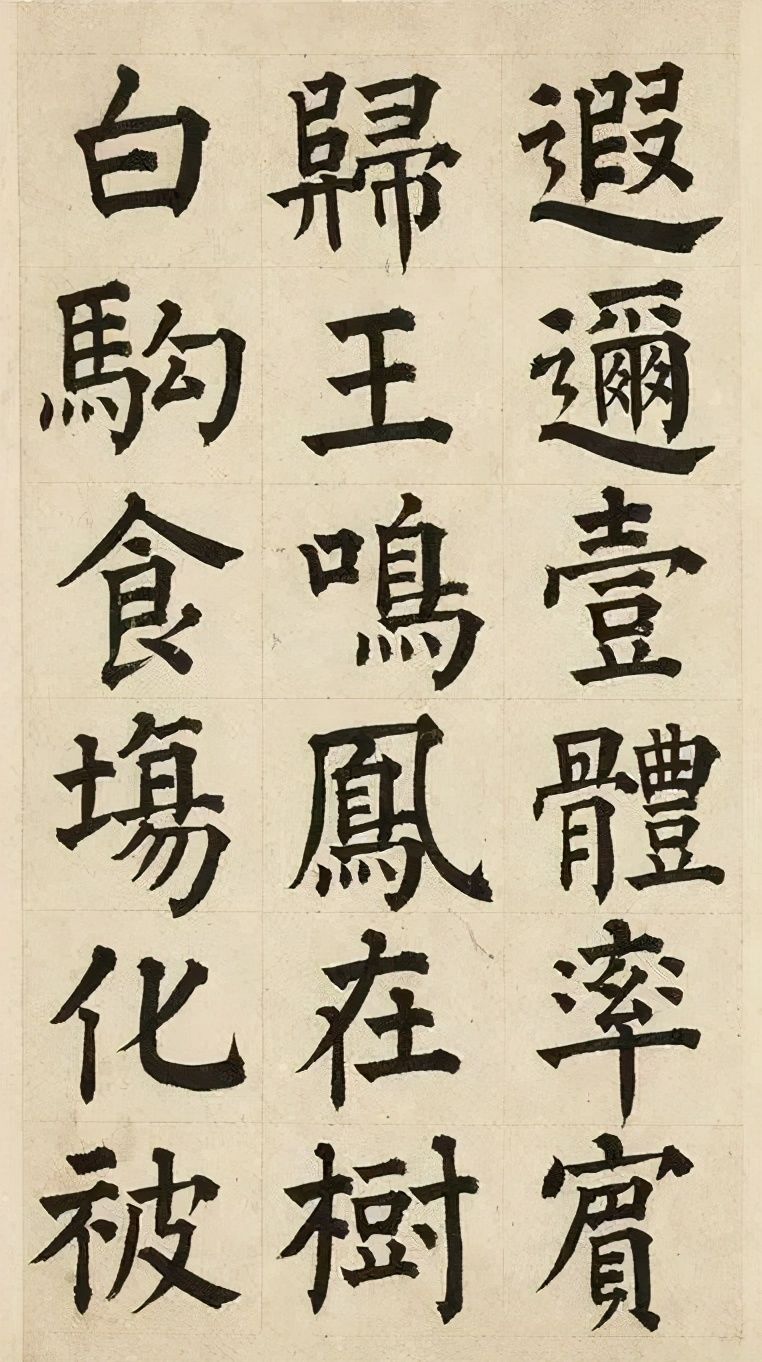 遐邇壹體率賓
歸王鳴鳳在樹
白駒食塲化被